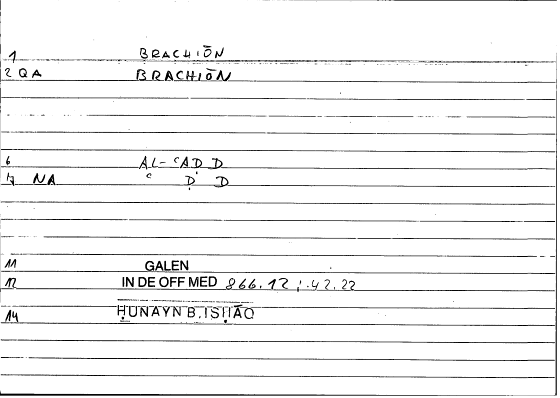 1 BRACHIŌN
2 QA BRACHIŌN
6 AL-ʿAḌD
7 NA ʿ Ḍ D
11 GALEN
12 IN DE OFF MED 866.12 ; 42.22
14 ḤUNAYN B. ISḤĀQ